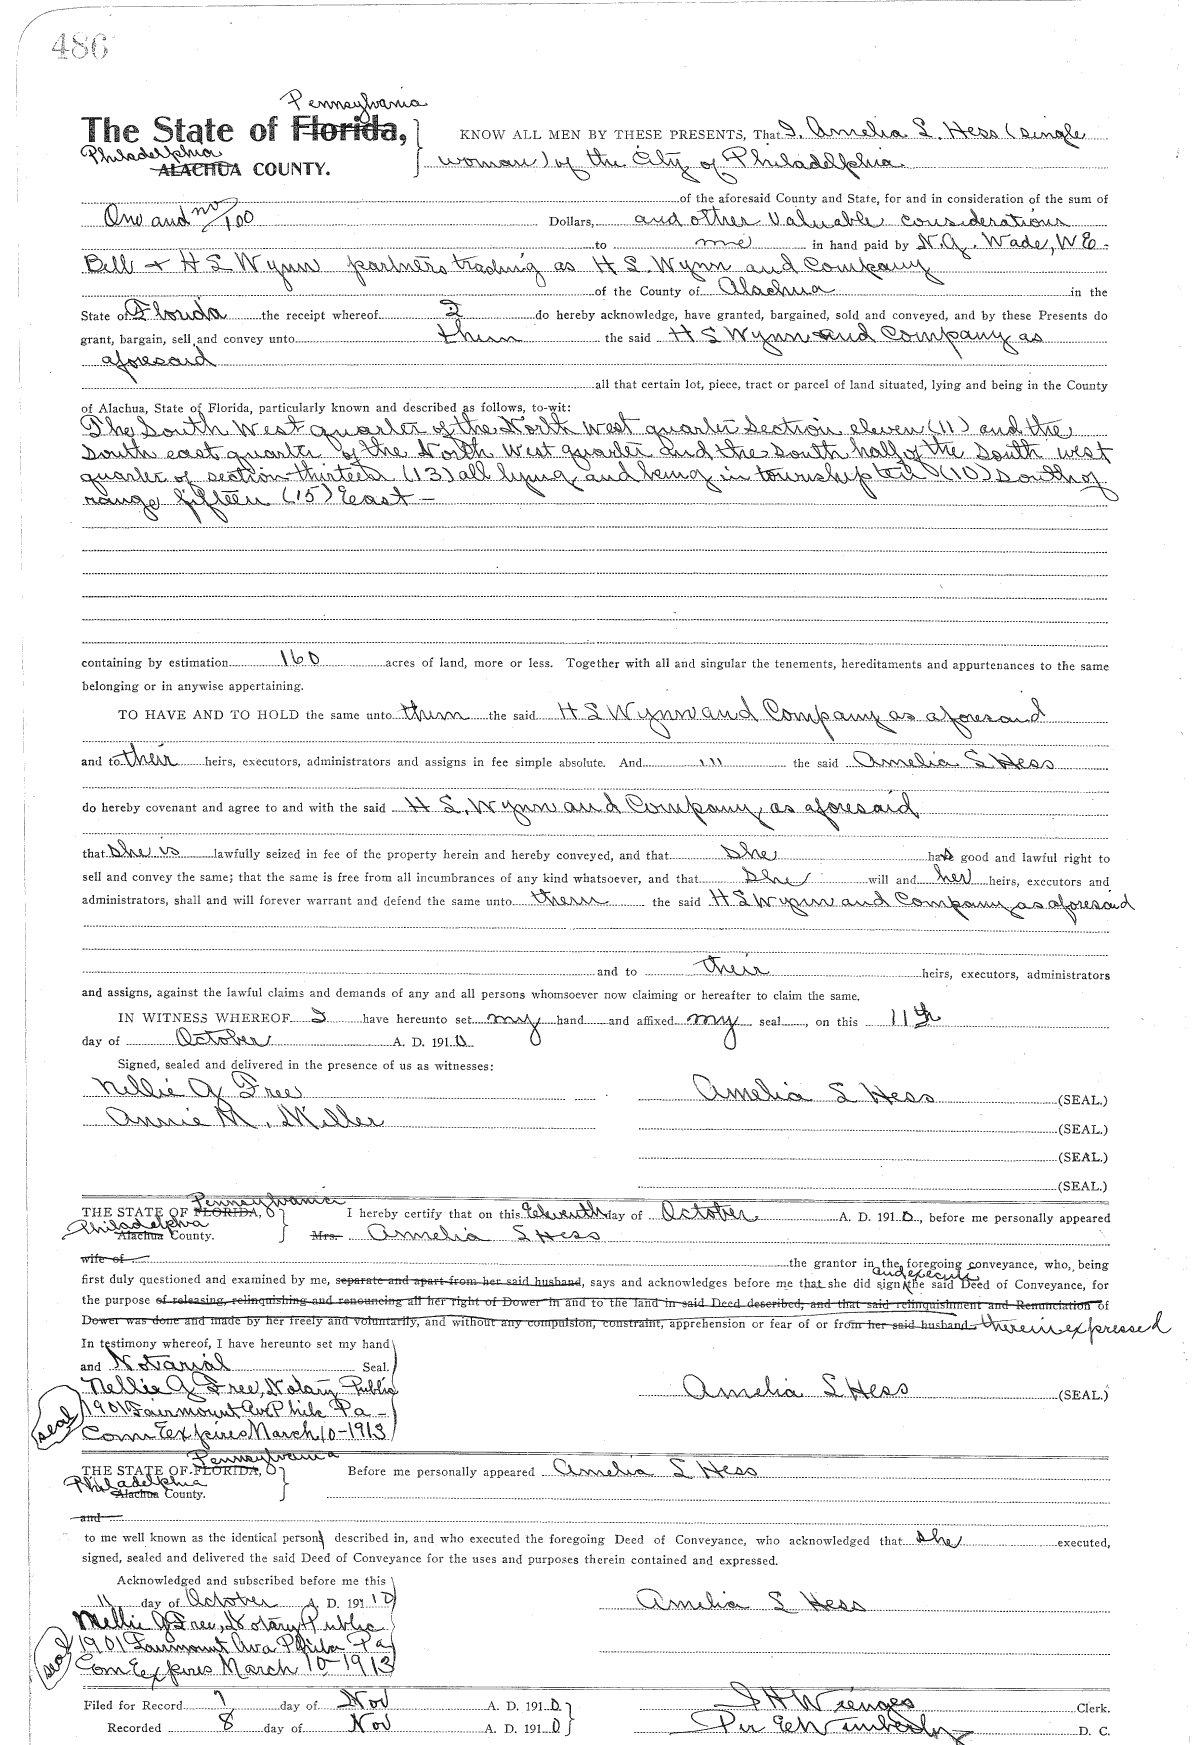 486
Pennsylvania
The State of Florida, KNOW ALL MEN BY THESE PRESENTS, That I, Amelia S. Hess (single
Philadelphia
ALACHUA COUNTY. woman) of the City of Philadelphia
of the aforesaid County and State, for and in consideration of the sum of
One and no/100 Dollars, and other valuable considerations
to me in hand paid by N.A. Wade, W E
Bell & H S Wynn partners trading as H S. Wynn and Company
of the County of Alachua in the
State of Florida the receipt whereof I do hereby acknowledge, have granted, bargained, sold and conveyed, and by these Presents do
grant, bargain, sell and convey unto them the said H S Wynn and Company as
aforesaid
all that certain lot, piece, tract or parcel of land situated, lying and being in the County
of Alachua, State of Florida, particularly known and described as follows, to-wit:
The South West quarter of the North West quarter Section eleven (11) and the
South east quarter of the North West quarter and the South half of the South west
quarter of section thirteen (13) all lying and being in township ten (10) South of
range fifteen (15) East —
containing by estimation 160 acres of land, more or less. Together with all and singular the tenements, hereditaments and appurtenances to the same
belonging or in anywise appertaining.
TO HAVE AND TO HOLD the same unto them the said H S Wynn and Company as aforesaid
and to their heirs, executors, administrators and assigns in fee simple absolute. And the said Amelia S Hess
do hereby covenant and agree to and with the said H S. Wynn and Company, as aforesaid
that she is lawfully seized in fee of the property herein and hereby conveyed, and that she has good and lawful right to
sell and convey the same; that the same is free from all incumbrances of any kind whatsoever, and that she will and her heirs, executors and
administrators, shall and will forever warrant and defend the same unto them the said H S Wynn and Company as aforesaid
and to their heirs, executors, administrators
and assigns, against the lawful claims and demands of any and all persons whomsoever now claiming or hereafter to claim the same.
IN WITNESS WHEREOF I have hereunto set my hand and affixed my seal, on this 11th
day of October A. D. 1910
Signed, sealed and delivered in the presence of us as witnesses:
Nellie A Free Amelia S Hess (SEAL.)
Annie M. Miller (SEAL.)
(SEAL.)
(SEAL.)
Pennsylvania
THE STATE OF FLORIDA, I hereby certify that on this Eleventh day of October A. D. 1910, before me personally appeared
Philadelphia
Alachua County. Mrs. Amelia S Hess
wife of the grantor in the foregoing conveyance, who, being
and execute
first duly questioned and examined by me, separate and apart from her said husband, says and acknowledges before me that she did sign the said Deed of Conveyance, for
the purpose of releasing, relinquishing and renouncing all her right of Dower in and to the land in said Deed described; and that said relinquishment and Renunciation of
Dower was done and made by her freely and voluntarily, and without any compulsion, constraint, apprehension or fear of or from her said husband. therein expressed
In testimony whereof, I have hereunto set my hand
and Notarial Seal.
Nellie A Free, Notary Public Amelia S Hess (SEAL.)
seal 1901 Fairmount Av Phila Pa
Com Expires March 10-1913
Pennsylvania
THE STATE OF FLORIDA, Before me personally appeared Amelia S Hess
Philadelphia
Alachua County.
and
to me well known as the identical person described in, and who executed the foregoing Deed of Conveyance, who acknowledged that she executed,
signed, sealed and delivered the said Deed of Conveyance for the uses and purposes therein contained and expressed.
Acknowledged and subscribed before me this
11 day of October A. D. 191 10 Amelia S Hess
Nellie A Free, Notary Public
seal 1901 Fairmount Ava Phila Pa
Com Expires March 10-1913
Filed for Record 7 day of Nov A. D. 1910 S H Wienges Clerk.
Recorded 8 day of Nov A. D. 1910 Per E Wimberly D. C.